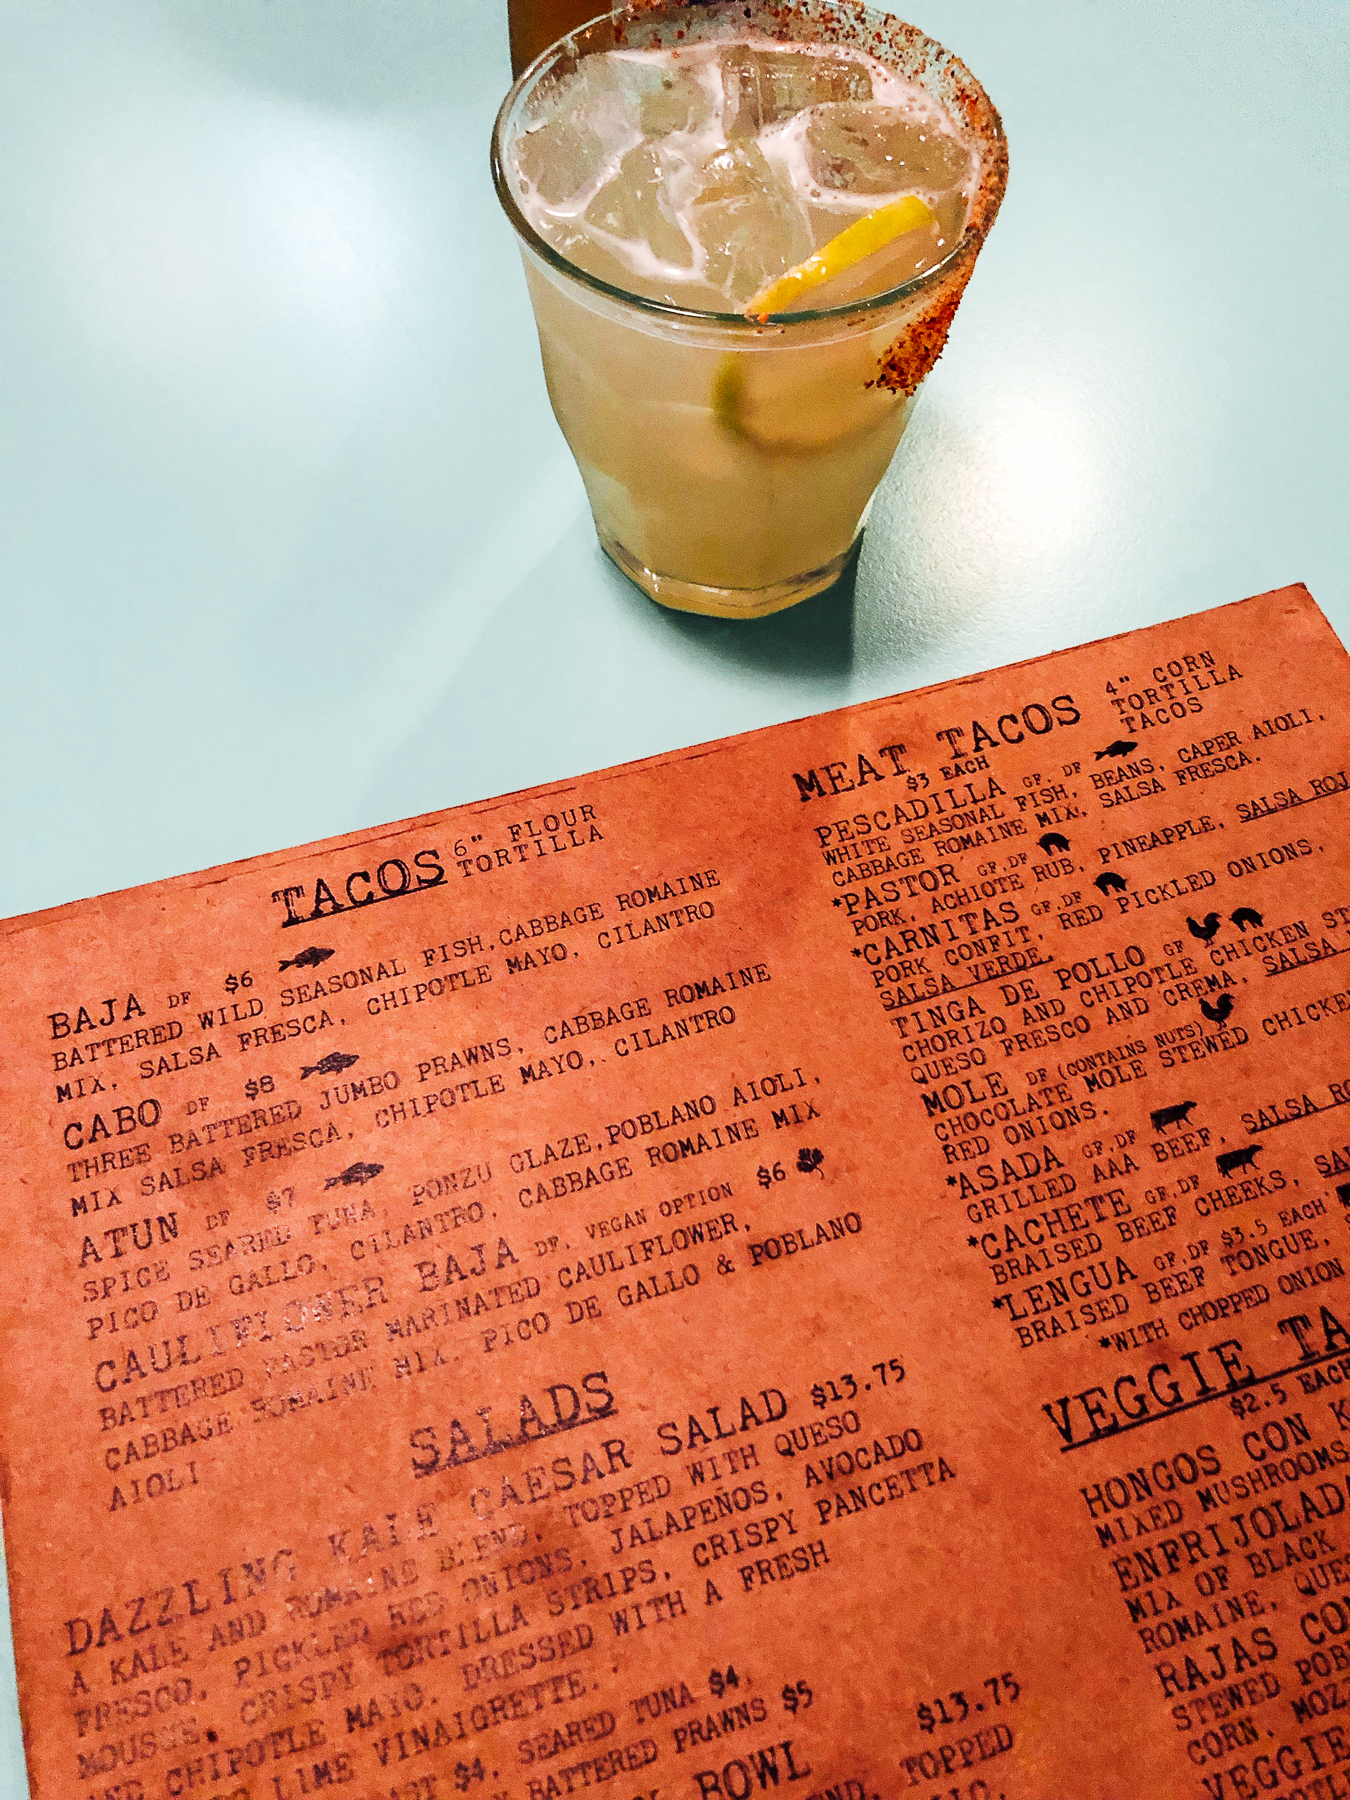 TACOS 6" FLOUR
TORTILLA
BAJA DF $6
BATTERED WILD SEASONAL FISH, CABBAGE ROMAINE
MIX, SALSA FRESCA, CHIPOTLE MAYO, CILANTRO
CABO DF $8
THREE BATTERED JUMBO PRAWNS, CABBAGE ROMAINE
MIX SALSA FRESCA, CHIPOTLE MAYO, CILANTRO
ATUN DF $7
SPICE SEARED TUNA, PONZU GLAZE, POBLANO AIOLI,
PICO DE GALLO, CILANTRO, CABBAGE ROMAINE MIX
CAULIFLOWER BAJA DF, VEGAN OPTION $6
BATTERED PASTOR MARINATED CAULIFLOWER,
CABBAGE ROMAINE MIX, PICO DE GALLO & POBLANO
AIOLI
SALADS
DAZZLING KALE CAESAR SALAD $13.75
A KALE AND ROMAINE BLEND, TOPPED WITH QUESO
FRESCO, PICKLED RED ONIONS, JALAPEÑOS, AVOCADO
MOUSSE, CRISPY TORTILLA STRIPS, CRISPY PANCETTA
AND CHIPOTLE MAYO. DRESSED WITH A FRESH
LIME VINAIGRETTE.
$4, SEARED TUNA $4,
BATTERED PRAWNS $5
BOWL $13.75
TOPPED
MEAT TACOS 4" CORN
TORTILLA
TACOS
$3 EACH
PESCADILLA GF, DF
WHITE SEASONAL FISH, BEANS, CAPER AIOLI,
CABBAGE ROMAINE MIX, SALSA FRESCA.
*PASTOR GF,DF
PORK, ACHIOTE RUB, PINEAPPLE, SALSA
*CARNITAS GF,DF
PORK CONFIT, RED PICKLED ONIONS,
SALSA VERDE.
TINGA DE POLLO GF
CHORIZO AND CHIPOTLE CHICKEN
QUESO FRESCO AND CREMA, SALSA
MOLE DF (CONTAINS NUTS)
CHOCOLATE MOLE STEWED CHICKEN
RED ONIONS.
*ASADA GF,DF
GRILLED AAA BEEF, SALSA
*CACHETE GF,DF
BRAISED BEEF CHEEKS,
*LENGUA GF,DF $3.5 EACH
BRAISED BEEF TONGUE,
*WITH CHOPPED ONION
VEGGIE
$2.5 EACH
HONGOS CON
MIXED MUSHROOMS
MIX OF BLACK
ROMAINE,
RAJAS
STEWED
CORN,
VEGGIE